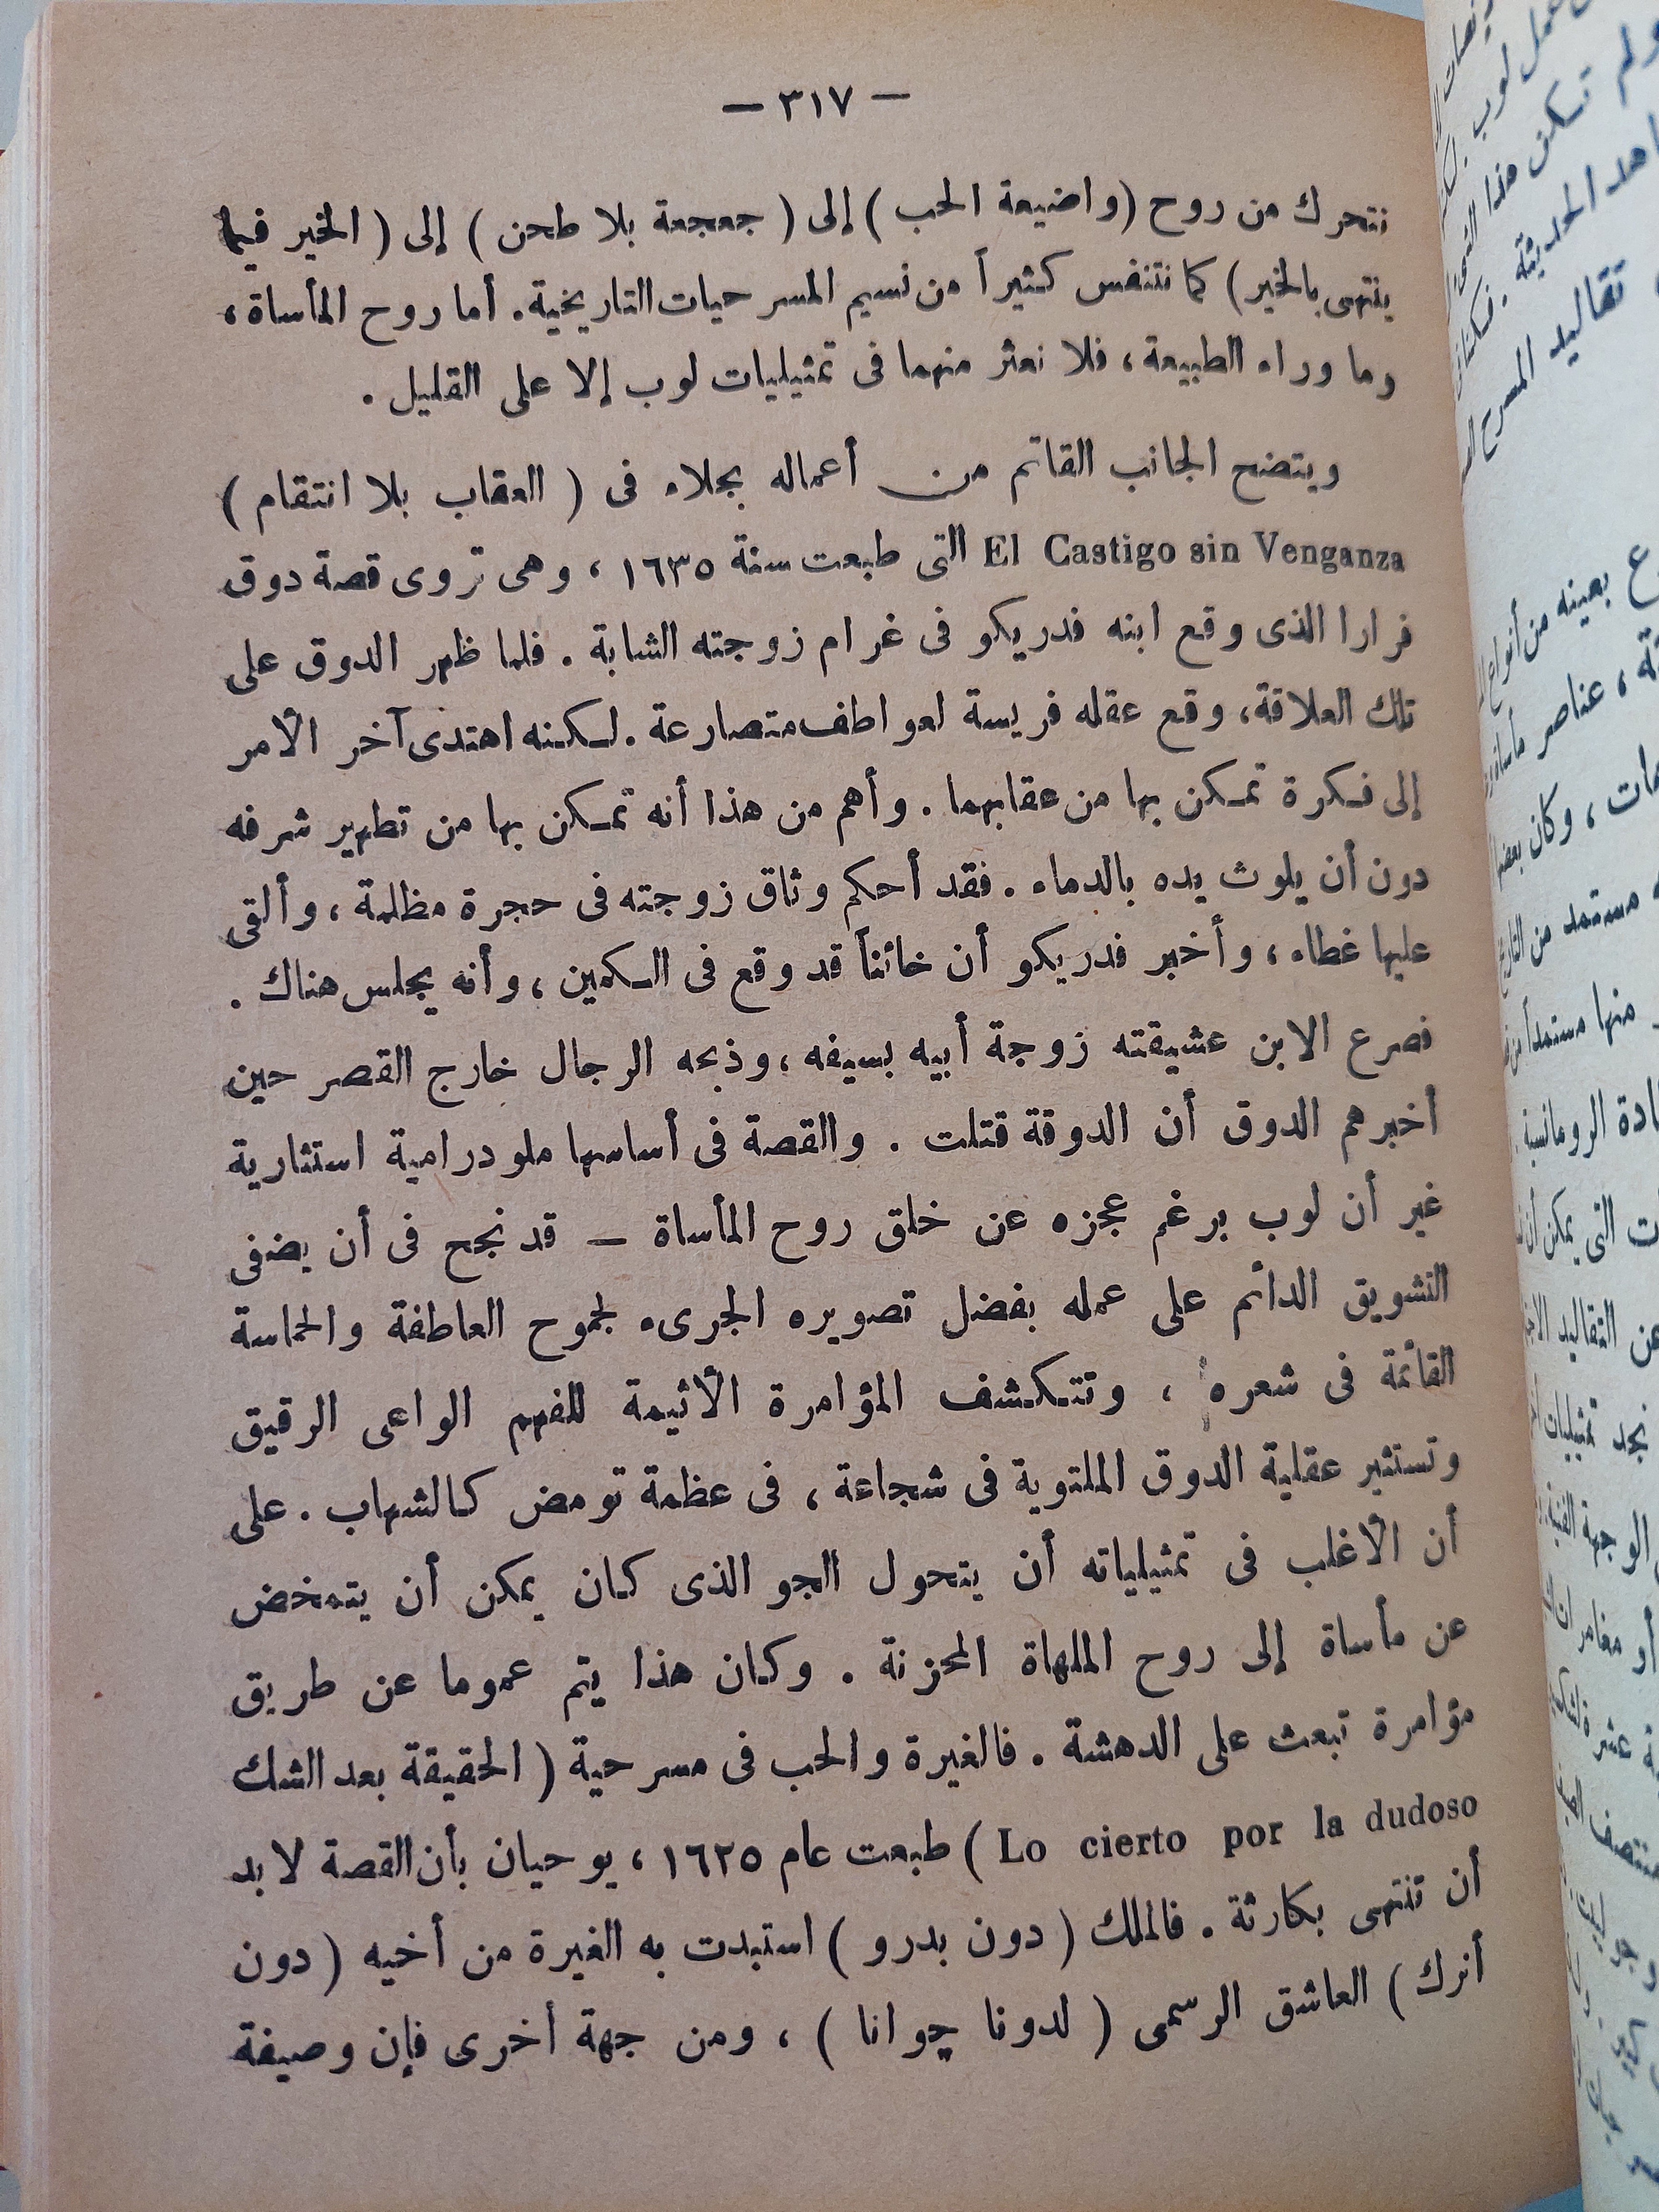 — ٣١٧ —
نتحرك من روح (واضيعة الحب) إلى (جعجعة بلا طحن) إلى (الخير فيما
ينتهى بالخير) كما نتنفس كثيراً من نسيم المسرحيات التاريخية. أما روح المأساة،
وما وراء الطبيعة، فلا نعثر منهما فى تمثيليات لوب إلا على القليل.
ويتضح الجانب القاتم من أعماله بجلاء فى (العقاب بلا انتقام)
El Castigo sin Venganza التى طبعت سنة ١٦٣٥، وهى تروى قصة دوق
فرارا الذى وقع ابنه فدريكو فى غرام زوجته الشابة. فلما ظهر الدوق على
تلك العلاقة، وقع عقله فريسة لعواطف متصارعة. لكنه اهتدى آخر الأمر
إلى فكرة تمكن بها من عقابهما. وأهم من هذا أنه تمكن بها من تطهير شرفه
دون أن يلوث يده بالدماء. فقد أحكم وثاق زوجته فى حجرة مظلمة، وألقى
عليها غطاء، وأخبر فدريكو أن خائناً قد وقع فى الكمين، وأنه يجلس هناك.
فصرع الابن عشيقته زوجة أبيه بسيفه، وذبحه الرجال خارج القصر حين
أخبرهم الدوق أن الدوقة قتلت. والقصة فى أساسها ملودرامية استثارية
غير أن لوب برغم عجزه عن خلق روح المأساة — قد نجح فى أن يضفى
التشويق الدائم على عمله بفضل تصويره الجرىء لجموح العاطفة والحماسة
القائمة فى شعره، وتتكشف المؤامرة الأثيمة للفهم الواعى الرقيق
وتستثير عقلية الدوق الملتوية فى شجاعة، فى عظمة تومض كالشهاب. على
أن الأغلب فى تمثيلياته أن يتحول الجو الذى كان يمكن أن يتمخض
عن مأساة إلى روح الملهاة المحزنة. وكان هذا يتم عموما عن طريق
مؤامرة تبعث على الدهشة. فالغيرة والحب فى مسرحية (الحقيقة بعد الشك
Lo cierto por la dudoso) طبعت عام ١٦٢٥، يوحيان بأن القصة لا بد
أن تنتهى بكارثة. فالملك (دون بدرو) استبدت به الغيرة من أخيه (دون
أنرك) العاشق الرسمى (لدونا چوانا)، ومن جهة أخرى فإن وصيفة